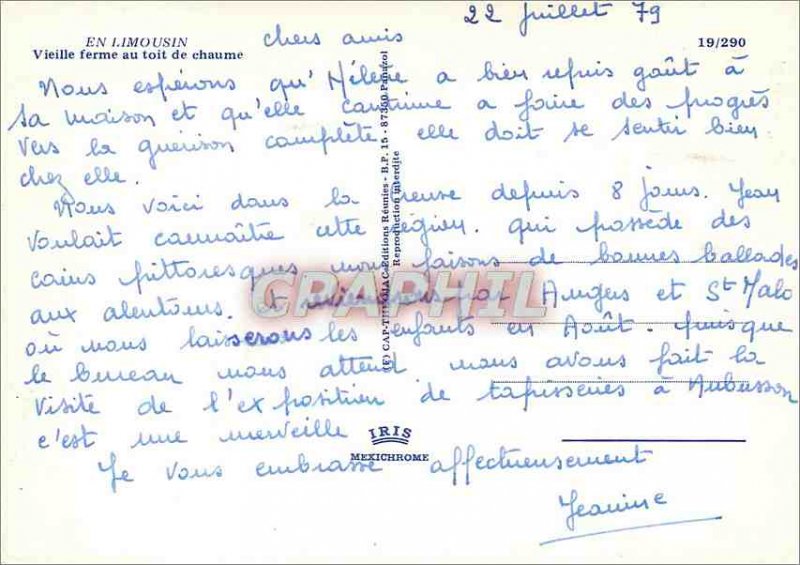 22 juillet 79
EN LIMOUSIN
Vieille ferme au toit de chaume
chers amis
19/290
Nous espérons qu'Hélène a bien repris goût à
sa maison et qu'elle continue a faire des progrès
vers la guérison complète. elle doit se sentir bien
chez elle.
Nous voici dans la Creuse depuis 8 jours. Jean
voulait connaître cette région. qui possède des
coins pittoresques nous faisons de bonnes ballades
aux alentours. et reviendrons par Angers et St Malo
où nous laisserons les enfants en Août. puisque
le bureau nous attend nous avons fait la
visite de l'exposition de tapisseries à Aubusson
c'est une merveille
Je vous embrasse affectueusement
Jeanine
(E) CAP-THÉOJAC-Editions Réunies - B.P. 15 - 87350 Panazol
Reproduction interdite
CPAPHIL
IRIS
MEXICHROME